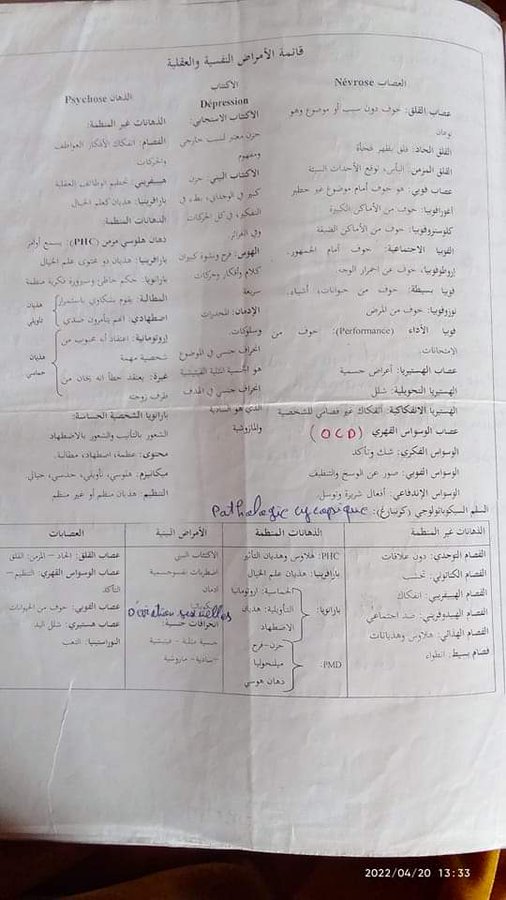 قائمة الأمراض النفسية والعقلية
العصاب Névrose
عصاب القلق: خوف دون سبب أو موضوع وهو
نوعان
القلق الحاد: قلق يظهر فجأة
القلق المزمن: اليأس، توقع الأحداث السيئة
عصاب فوبي: هو خوف أمام موضوع غير خطير
أغورافوبيا: خوف من الأماكن الكبيرة
كلوستروفوبيا: خوف من الأماكن الضيقة
الفوبيا الاجتماعية: خوف أمام الجمهور.
إروطوفوبيا: خوف عن احمرار الوجه
فوبيا بسيطة: خوف من حيوانات، أشياء.
نوزوفوبيا: خوف من المرض
فوبيا الأداء (Performance): خوف من
الامتحانات.
عصاب الهستيريا: أعراض جسمية
الهستيريا التحويلية: شلل
الهستيريا الانفكاكية: انفكاك غير فصامي للشخصية
عصاب الوسواس القهري (OCD)
الوسواس الفكري: شك وتأكد
الوسواس الفوبي: صور عن الوسخ والتنظيف
الوسواس الإندفاعي: أفعال شريرة وتوسل
الاكتئاب
Dépression
الاكتئاب الاستجابي:
حزن معتبر لسبب خارجي
ومفهوم
الاكتئاب البني: حزن
كبير في الوجداني، بطء في
التفكير، في كل الحركات
وفي الغرائز
الهوس: فرح ونشوة كبيران
كلام وأفكار وحركات
سريعة
الإدمان: المخدرات
وسلوكات.
انحراف جنسي في الموضوع
هو الجنسية المثلية الفتيشية
انحراف جنسي في الهدف
الذي هو السادية
والمازوشية
الذهان Psychose
الذهانات غير المنظمة:
الفصام: انفكاك الأفكار العواطف
والحركات
هيبفريني: تحطيم الوظائف العقلية
بارافرينيا: هذيان كعلم الخيال
الذهانات المنظمة:
ذهان هلوسي مزمن (PHC): يسمع أوامر
بارافرينيا: هذيان ذو محتوى علم الخيال
بارانويا: حكم خاطئ وسيرورة فكرية منظمة
المطالبة: يقوم بشكاوي باستمرار
اضطهادي: انهم يتآمرون ضدي
هذيان
تأويلي
إروتومانية: اعتقاد أنه محبوب من
شخصية مهمة
غيرة: يعتقد خطأ انه يخان من
طرف زوجته
هذيان
حماسي
بارانويا الشخصية الحساسة:
الشعور بالتأنيب والشعور بالاضطهاد
محتوى: عظمة، اضطهاد، مطالبة.
ميكانيزم: هلوسي، تأويلي، حدسي، خيالي
التنظيم: هذيان منظم أو غير منظم
السلم السيكوباتولوجي (كوتيارغ):
الذهانات غير المنظمة
الفصام التوحدي: دون علاقات
الفصام الكتاتوني: تخشب
الفصام الهيبفريني: انفكاك
الفصام الهيدوفريني: ضد اجتماعي
الفصام الهذائي: هلاوس وهذيانات
فصام بسيط: انطواء
الذهانات المنظمة
PHC: هلاوس وهذيان التأثير
بارافرينيا: هذيان علم الخيال
بارانويا:
الحماسية: إروتومانيا
التأويلية: هذيان
الاضطهاد
PMD:
حزن-فرح
ميلنخوليا
ذهان هوسي
الأمراض البنية
الاكتئاب البني
اضطرابات نفسوجسمية
ادمان
Déviation sexuelles
انحرافات جنسية:
جنسية مثلية - فيتيشية
-سادية- مازوشية
العصابات
عصاب القلق: الحاد - المزمن: القلق
عصاب الوسواس القهري: التنظيم-
التأكد
عصاب الفوبي: خوف من الحيوانات
عصاب هستيري: شلل اليد
النوراستينيا: التعب
2022/04/20 13:33